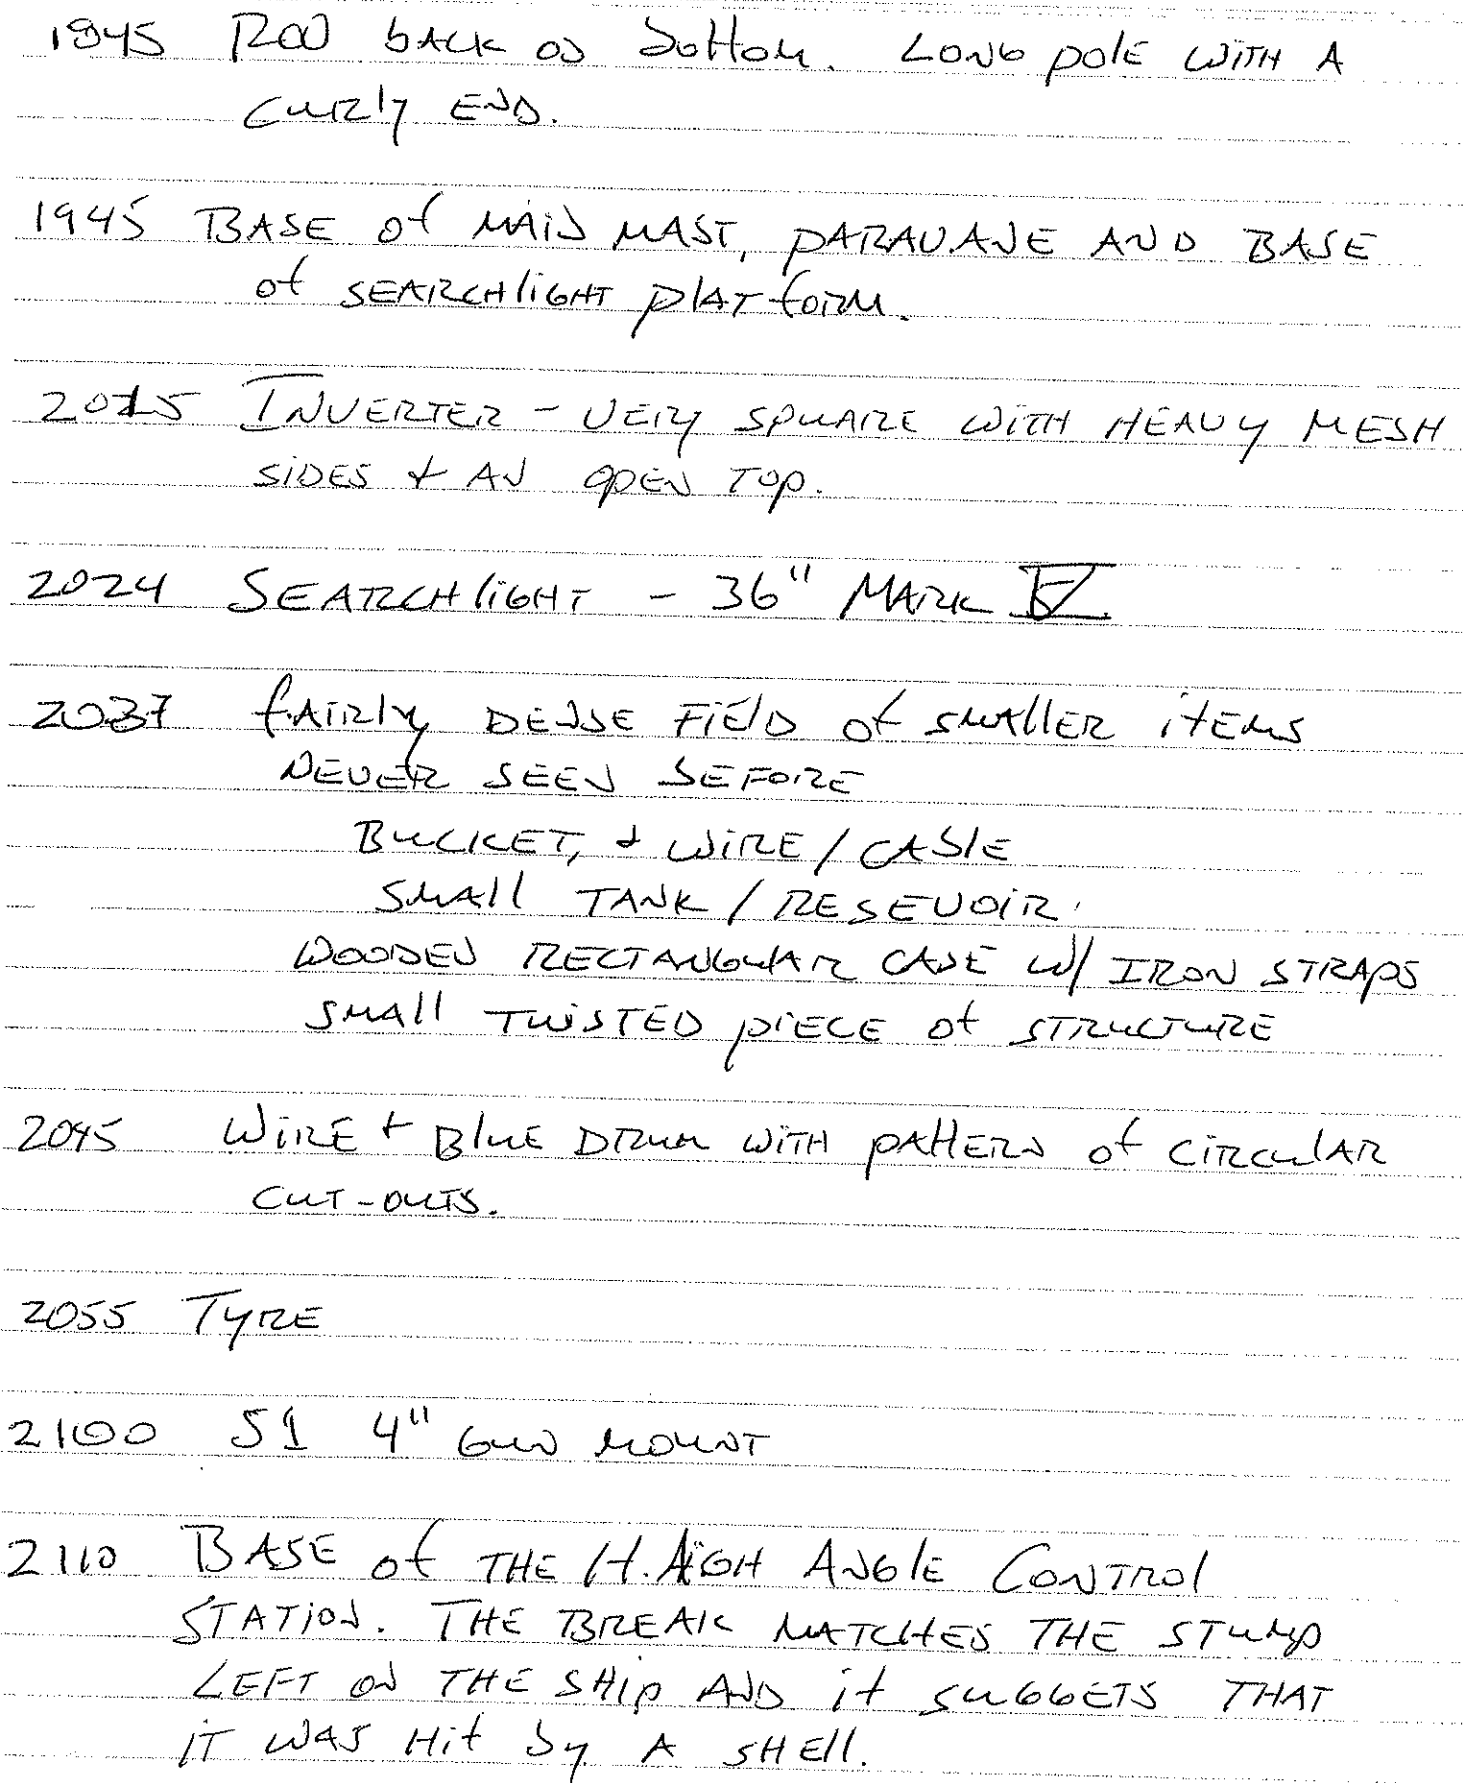 1945 ROV back on bottom. Long pole with a
curly end.
1945 Base of main mast, paravane and base
of searchlight platform.
2015 Inverter - very square with heavy mesh
sides + an open top.
2024 Searchlight - 36" Mark IV.
2037 fairly dense field of smaller items
never seen before
Bucket, + wire/cable
small tank/resevoir.
wooden rectangular case w/ iron straps
small twisted piece of structure
2045 Wire + blue drum with pattern of circular
cut-outs.
2055 Tyre
2100 S1 4" gun mount
2110 Base of the High Angle Control
Station. The break matches the stump
left on the ship and it suggets that
it was hit by a shell.